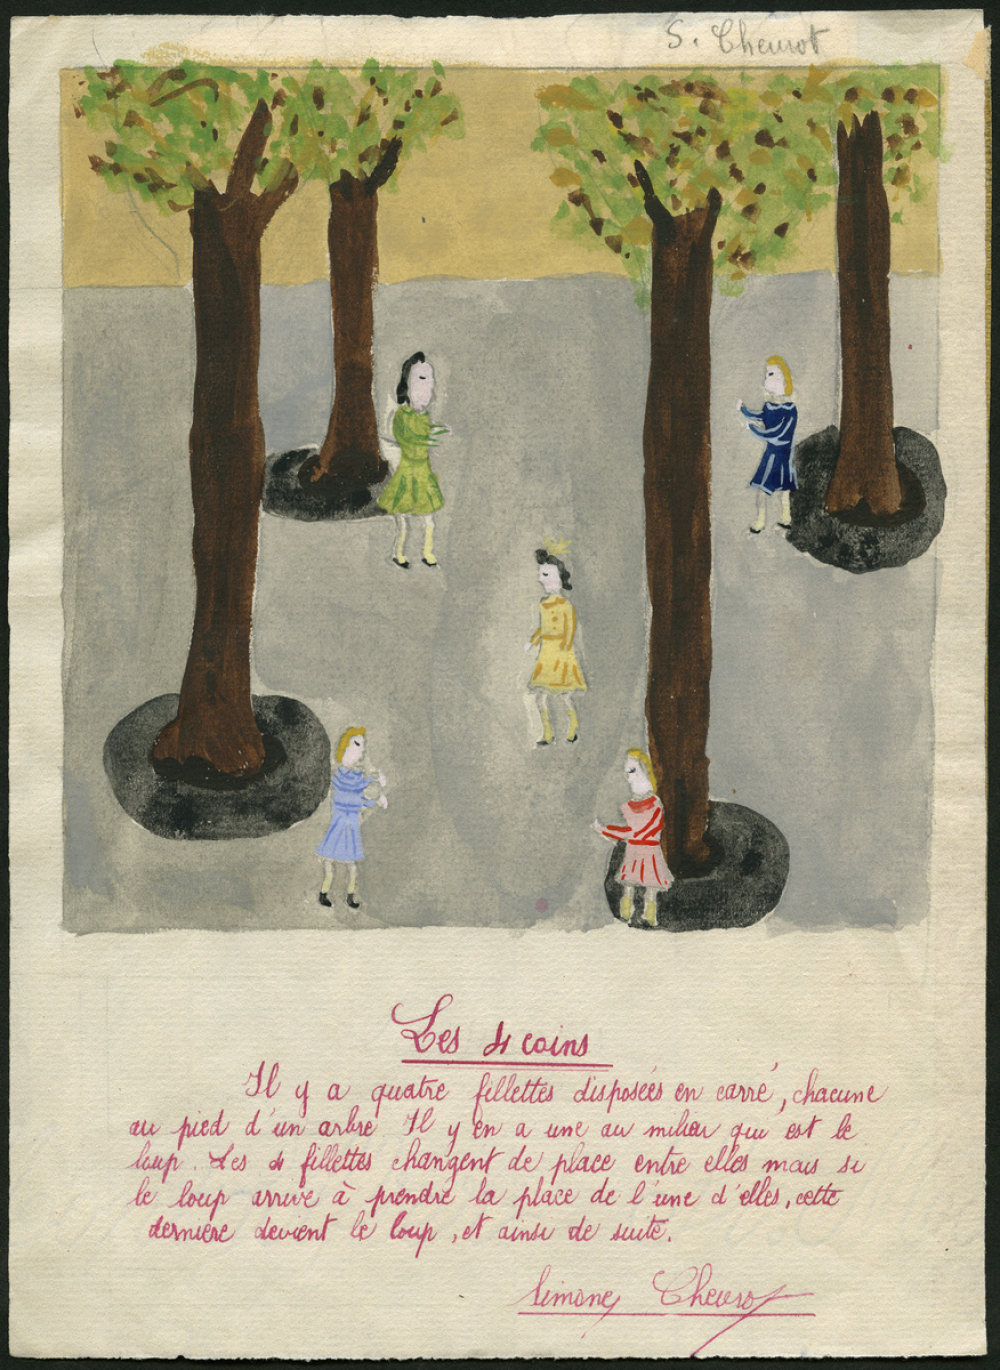 S. Cheurot
Les 4 coins
Il y a quatre fillettes disposées en carré, chacune
au pied d'un arbre. Il y en a une au milieu qui est le
loup. Les 4 fillettes changent de place entre elles mais si
le loup arrive à prendre la place de l'une d'elles, cette
dernière devient le loup, et ainsi de suite.
Simone Cheurot